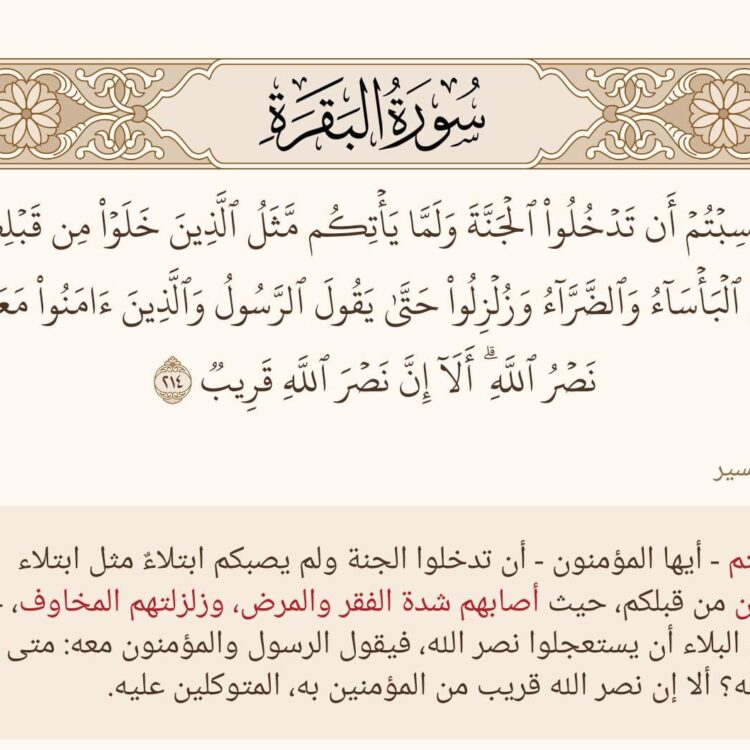 سُورَةُ البَقَرَةِ
سِبۡتُمۡ أَن تَدۡخُلُواْ ٱلۡجَنَّةَ وَلَمَّا يَأۡتِكُم مَّثَلُ ٱلَّذِينَ خَلَوۡاْ مِن قَبۡلِ
ٱلۡبَأۡسَآءُ وَٱلضَّرَّآءُ وَزُلۡزِلُواْ حَتَّىٰ يَقُولَ ٱلرَّسُولُ وَٱلَّذِينَ ءَامَنُواْ مَعَ
نَصۡرُ ٱللَّهِۗ أَلَآ إِنَّ نَصۡرَ ٱللَّهِ قَرِيبٞ ٢١٤
سير
تم - أيها المؤمنون - أن تدخلوا الجنة ولم يصبكم ابتلاءٌ مثل ابتلاء
ن من قبلكم، حيث أصابهم شدة الفقر والمرض، وزلزلتهم المخاوف،
البلاء أن يستعجلوا نصر الله، فيقول الرسول والمؤمنون معه: متى
ه؟ ألا إن نصر الله قريب من المؤمنين به، المتوكلين عليه.